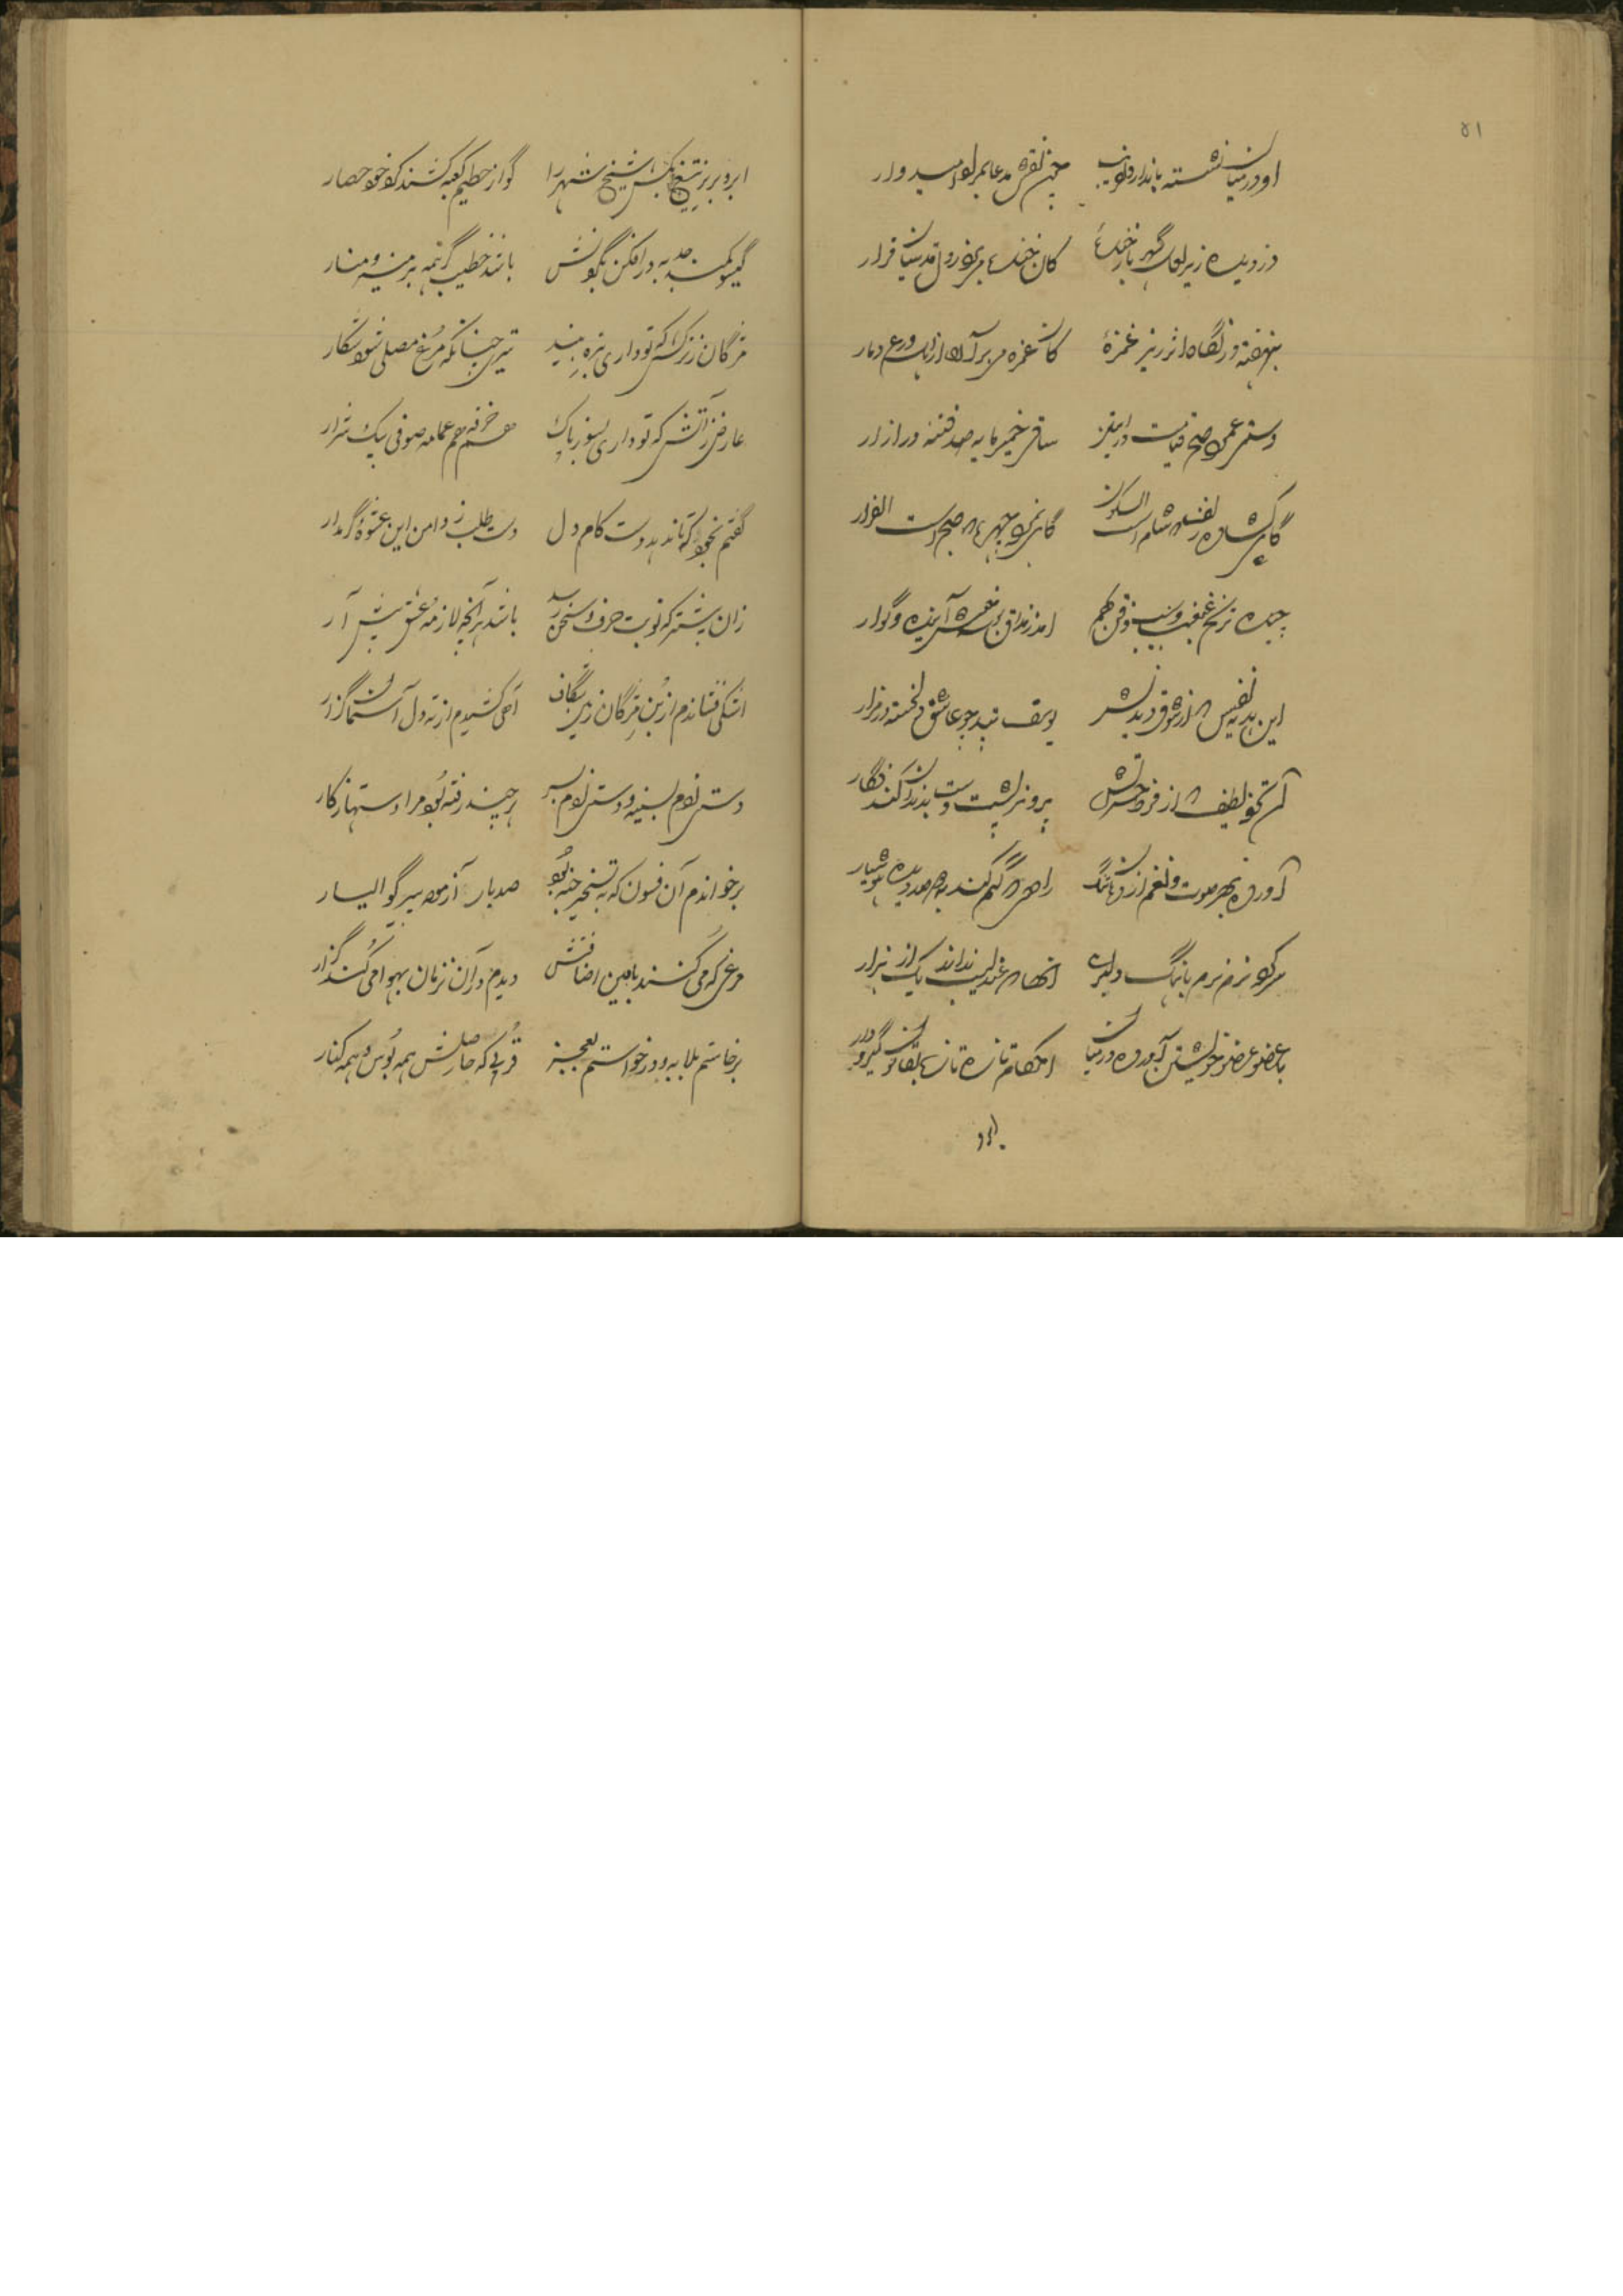 ۵۱
او در میان نشسته بانداز دلفریب چون نقش مدعا بمراد امیدوار
دزدیده زیر لب گهر بار خنده کان خنده می‌برد ز دل قدسیان قرار
بنهفته در نگاه اثرریز غمزه کان غمزه می برآرد از اهل ورع دمار
دستی عمود صبح قیامت در
ساقی خمیرمایه صد فتنه در ازار
گاهی گشاده زلف که شام است السکون گاهی نموده چهره که صبح است الفرار
چیده ترنج غبغب و سیب ذقن بهم
این بدیه نفیس که از شوق دیدنش یوسف تپد چو عاشق دلخسته در مزار
آن تحفه لطیف که از فرط حسرتش پرویز پشت دست بدندان کند فگار
آورده بهر صوت و نغم از دف و چنگ راهی که گم کند به صد دیده هوشیار
سر کرده نرم نرم بآهنگ دلبری آنها که عندلیب نداند یک از هزار
با عضو عضو خویشتن آورده در میان احکام تازه تازه بقانون گیر و دار
ابرو
ابرو بریز تیغ بکش شیخ شهر را گو از حطیم کعبه کشند گرد خود حصار
گیسو کمند حدبه در افکن بگردنش باشد خطیب گر همه بر منبر و منار
مژگان ز ترکشی که تو داری بزه ببند تیری چنانکه مرغ مصلی شود شکار
عارض ز آتشی که تو داری بسوز پاک هم خرقه هم عمامه صوفی بیک شرار
گفتم بخود که تا ندهد دست کام دل دست طلب ز دامن این عشوه‌گر مدار
زان پیشتر که نوبت حرف و سخن رسد باشد هر آنچه لازمه عشق پیش آر
اشکی فشاندم از بن مژگان زمین شگاف آهی کشیدم از ته دل آسمان گزار
دستی زدم بسینه و دستی زدم بسر هر چند رفته بود مرا دستها ز کار
برخواندم آن فسون که به تسخیر جنیه بود صد بار آزموده بیر گو الیسار
مرغی که می‌کنند بامین اضافتش دیدم در آن زمان بهوا می‌کند گزار
برخاستم بلابه و درخواستم بعجز قربی که حاصلش همه بوس و همه کنار